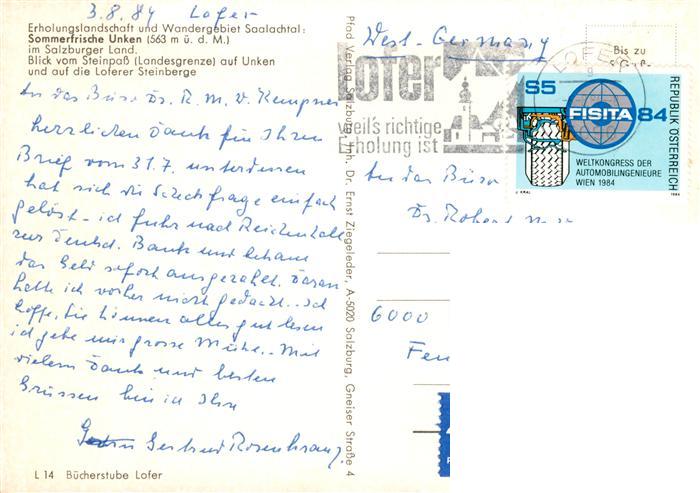 3.8.84 Lofer
Erholungslandschaft und Wandergebiet Saalachtal:
Sommerfrische Unken (563 m ü. d. M.)
im Salzburger Land.
Blick vom Steinpaß (Landesgrenze) auf Unken
und auf die Loferer Steinberge
An das Büro Dr. R. M. W. Kempner
herzlichen Dank für Ihren
Brief vom 31.7. unterdessen
hat sich die Scheckfrage einfach
gelöst - ich fuhr nach Reichenhall
zur Deutsch. Bank und bekam
das Geld sofort ausgezahlt. Daran
hatte ich vorher nicht gedacht.. Ich
hoffe, Sie können alles gut lesen
ich gebe mir grosse Mühe.. Mit
vielem Dank und besten
Grüssen bin ich Ihre
Gertrud Rosenkranz
L 14 Bücherstube Lofer
Pfad Verlag Salzburg, Inh. Dr. Ernst Ziegeleder, A-5020 Salzburg, Gneiser Straße 4
West-Germany
Bis zu
Lofer
weil's richtige
Erholung ist
LOFER
S5
FISITA 84
WELTKONGRESS DER
AUTOMOBILINGENIEURE
WIEN 1984
REPUBLIK ÖSTERREICH
J. KRAL
1984
An das Büro
Dr. Robert
6000